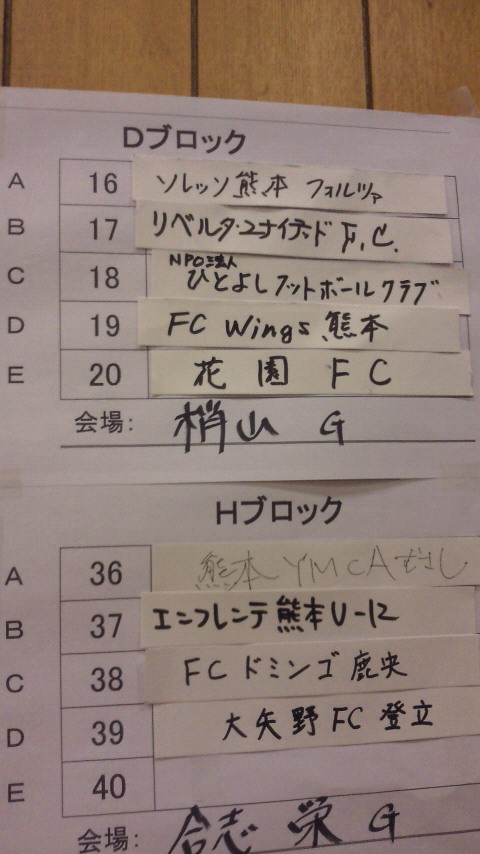 Dブロック
A 16 ソレッソ熊本 フォルツァ
B 17 リベルタ・ユナイテッド F.C.
C 18 NPO法人 ひとよしフットボールクラブ
D 19 FC Wings 熊本
E 20 花園 FC
会場: 梢山 G
Hブロック
A 36 熊本YMCAむさし
B 37 エンフレンテ熊本U-12
C 38 FCドミンゴ鹿央
D 39 大矢野FC登立
E 40
会場: 合志 栄 G